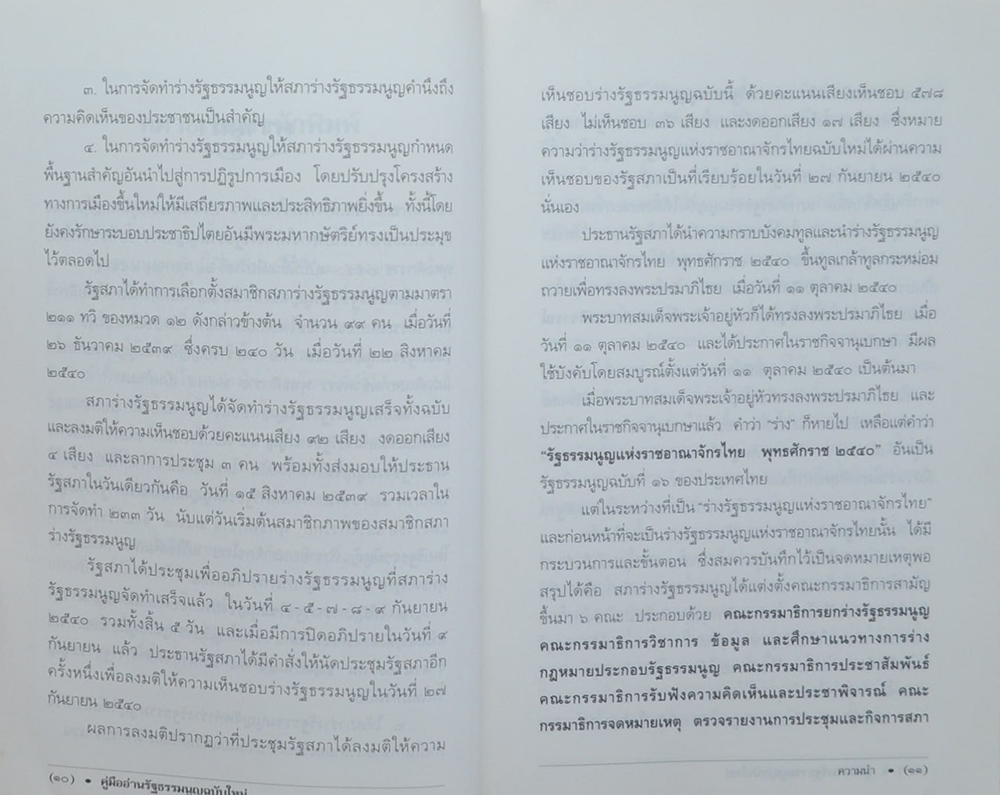 ๓. ในการจัดทำร่างรัฐธรรมนูญให้สภาร่างรัฐธรรมนูญคำนึงถึง
ความคิดเห็นของประชาชนเป็นสำคัญ
๔. ในการจัดทำร่างรัฐธรรมนูญให้สภาร่างรัฐธรรมนูญกำหนด
พื้นฐานสำคัญอันนำไปสู่การปฏิรูปการเมือง โดยปรับปรุงโครงสร้าง
ทางการเมืองขึ้นใหม่ให้มีเสถียรภาพและประสิทธิภาพยิ่งขึ้น ทั้งนี้โดย
ยังคงรักษาระบอบประชาธิปไตยอันมีพระมหากษัตริย์ทรงเป็นประมุข
ไว้ตลอดไป
รัฐสภาได้ทำการเลือกตั้งสมาชิกสภาร่างรัฐธรรมนูญตามมาตรา
๒๑๑ ทวิ ของหมวด ๑๒ ดังกล่าวข้างต้น จำนวน ๙๙ คน เมื่อวันที่
๒๖ ธันวาคม ๒๕๓๙ ซึ่งครบ ๒๔๐ วัน เมื่อวันที่ ๒๒ สิงหาคม
๒๕๔๐
สภาร่างรัฐธรรมนูญได้จัดทำร่างรัฐธรรมนูญเสร็จทั้งฉบับ
และลงมติให้ความเห็นชอบด้วยคะแนนเสียง ๙๒ เสียง งดออกเสียง
๔ เสียง และลาการประชุม ๓ คน พร้อมทั้งส่งมอบให้ประธาน
รัฐสภาในวันเดียวกันคือ วันที่ ๑๕ สิงหาคม ๒๕๓๙ รวมเวลาใน
การจัดทำ ๒๓๓ วัน นับแต่วันเริ่มต้นสมาชิกภาพของสมาชิกสภา
ร่างรัฐธรรมนูญ
รัฐสภาได้ประชุมเพื่ออภิปรายร่างรัฐธรรมนูญที่สภาร่าง
รัฐธรรมนูญจัดทำเสร็จแล้ว ในวันที่ ๔-๕-๗-๘-๙ กันยายน
๒๕๔๐ รวมทั้งสิ้น ๕ วัน และเมื่อมีการปิดอภิปรายในวันที่ ๙
กันยายน แล้ว ประธานรัฐสภาได้มีคำสั่งให้นัดประชุมรัฐสภาอีก
ครั้งหนึ่งเพื่อลงมติให้ความเห็นชอบร่างรัฐธรรมนูญในวันที่ ๒๗
กันยายน ๒๕๔๐
ผลการลงมติปรากฏว่าที่ประชุมรัฐสภาได้ลงมติให้ความ
(๑๐) • คู่มืออ่านรัฐธรรมนูญฉบับใหม่
เห็นชอบร่างรัฐธรรมนูญฉบับนี้ ด้วยคะแนนเสียงเห็นชอบ ๕๗๘
เสียง ไม่เห็นชอบ ๓๖ เสียง และงดออกเสียง ๑๗ เสียง ซึ่งหมาย
ความว่าร่างรัฐธรรมนูญแห่งราชอาณาจักรไทยฉบับใหม่ได้ผ่านความ
เห็นชอบของรัฐสภาเป็นที่เรียบร้อยในวันที่ ๒๗ กันยายน ๒๕๔๐
นั่นเอง
ประธานรัฐสภาได้นำความกราบบังคมทูลและนำร่างรัฐธรรมนูญ
แห่งราชอาณาจักรไทย พุทธศักราช ๒๕๔๐ ขึ้นทูลเกล้าทูลกระหม่อม
ถวายเพื่อทรงลงพระปรมาภิไธย เมื่อวันที่ ๑๑ ตุลาคม ๒๕๔๐
พระบาทสมเด็จพระเจ้าอยู่หัวก็ได้ทรงลงพระปรมาภิไธย เมื่อ
วันที่ ๑๑ ตุลาคม ๒๕๔๐ และได้ประกาศในราชกิจจานุเบกษา มีผล
ใช้บังคับโดยสมบูรณ์ตั้งแต่วันที่ ๑๑ ตุลาคม ๒๕๔๐ เป็นต้นมา
เมื่อพระบาทสมเด็จพระเจ้าอยู่หัวทรงลงพระปรมาภิไธย และ
ประกาศในราชกิจจานุเบกษาแล้ว คำว่า "ร่าง" ก็หายไป เหลือแต่คำว่า
"รัฐธรรมนูญแห่งราชอาณาจักรไทย พุทธศักราช ๒๕๔๐" อันเป็น
รัฐธรรมนูญฉบับที่ ๑๖ ของประเทศไทย
แต่ในระหว่างที่เป็น "ร่างรัฐธรรมนูญแห่งราชอาณาจักรไทย"
และก่อนหน้าที่จะเป็นร่างรัฐธรรมนูญแห่งราชอาณาจักรไทยนั้น ได้มี
กระบวนการและขั้นตอน ซึ่งสมควรบันทึกไว้เป็นจดหมายเหตุพอ
สรุปได้คือ สภาร่างรัฐธรรมนูญได้แต่งตั้งคณะกรรมาธิการสามัญ
ขึ้นมา ๖ คณะ ประกอบด้วย คณะกรรมาธิการยกร่างรัฐธรรมนูญ
คณะกรรมาธิการวิชาการ ข้อมูล และศึกษาแนวทางการร่าง
กฎหมายประกอบรัฐธรรมนูญ คณะกรรมาธิการประชาสัมพันธ์
คณะกรรมาธิการรับฟังความคิดเห็นและประชาพิจารณ์ คณะ
กรรมาธิการจดหมายเหตุ ตรวจรายงานการประชุมและกิจการสภา
ความนำ • (๑๑)